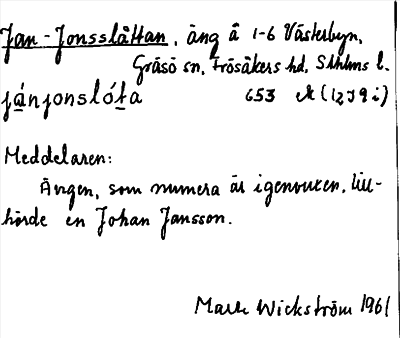 Jan-Jonsslåttan, äng å 1-6 Västerbyn,
Gräsö sn, Frösåkers hd, Sthlms l.
jánjonslóta 653 (12J9i)
Meddelaren:
Ängen, som numera är igenvuxen, till-
hörde en Johan Jansson.
Wickström 1961